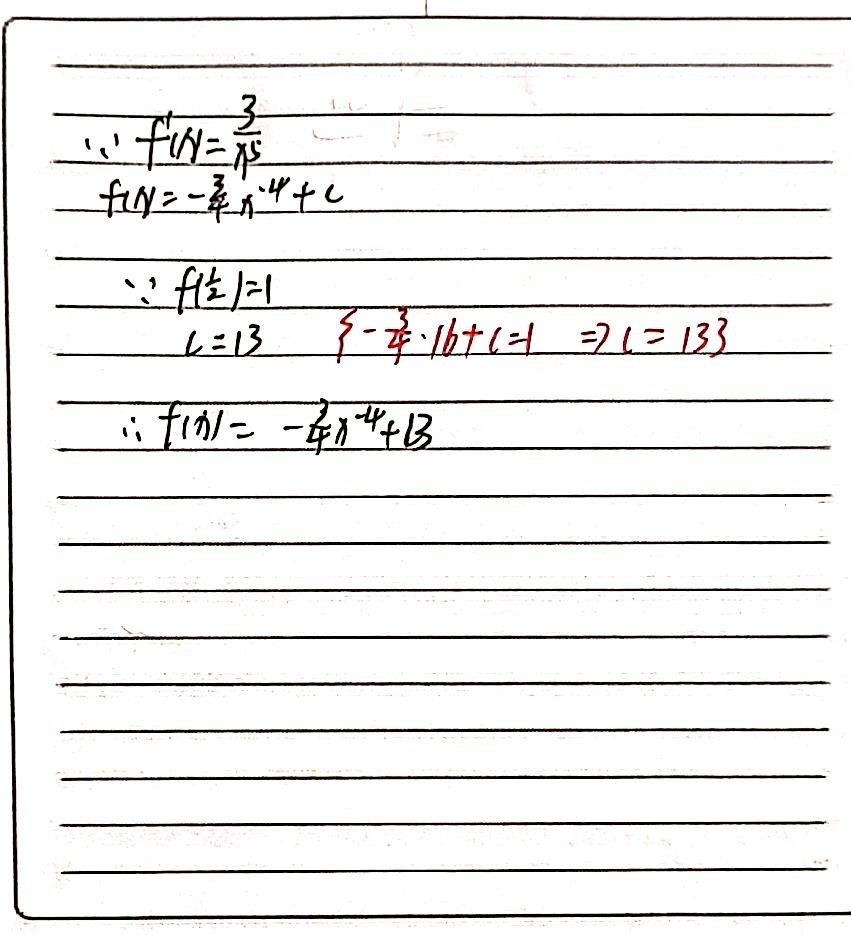 ∵ f'(x) = 3/x⁵
f(x) = -3/4 x⁻⁴ + c
∵ f(1/2) = 1
c = 13 {-3/4 · 16 + c = 1 ⇒ c = 13}
∴ f(x) = -3/4 x⁻⁴ + 13